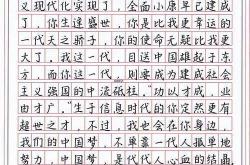 义现代化实现了，全面小康早已建成
了，你生逢盛世，你是比我更幸运的
一代天之骄子，你的使命无疑比我更
大了，我这一代，目送中国雄起于东
方，而你这一代，则要成为建成社会
主义强国的中流砥柱，"功以才成，业
由才广，"生于信息时代的你定然更有
超世之才，不过，我也会在你身边，
我们的中国梦，不单靠一代人孤狼
的中国梦，是代代人心血的